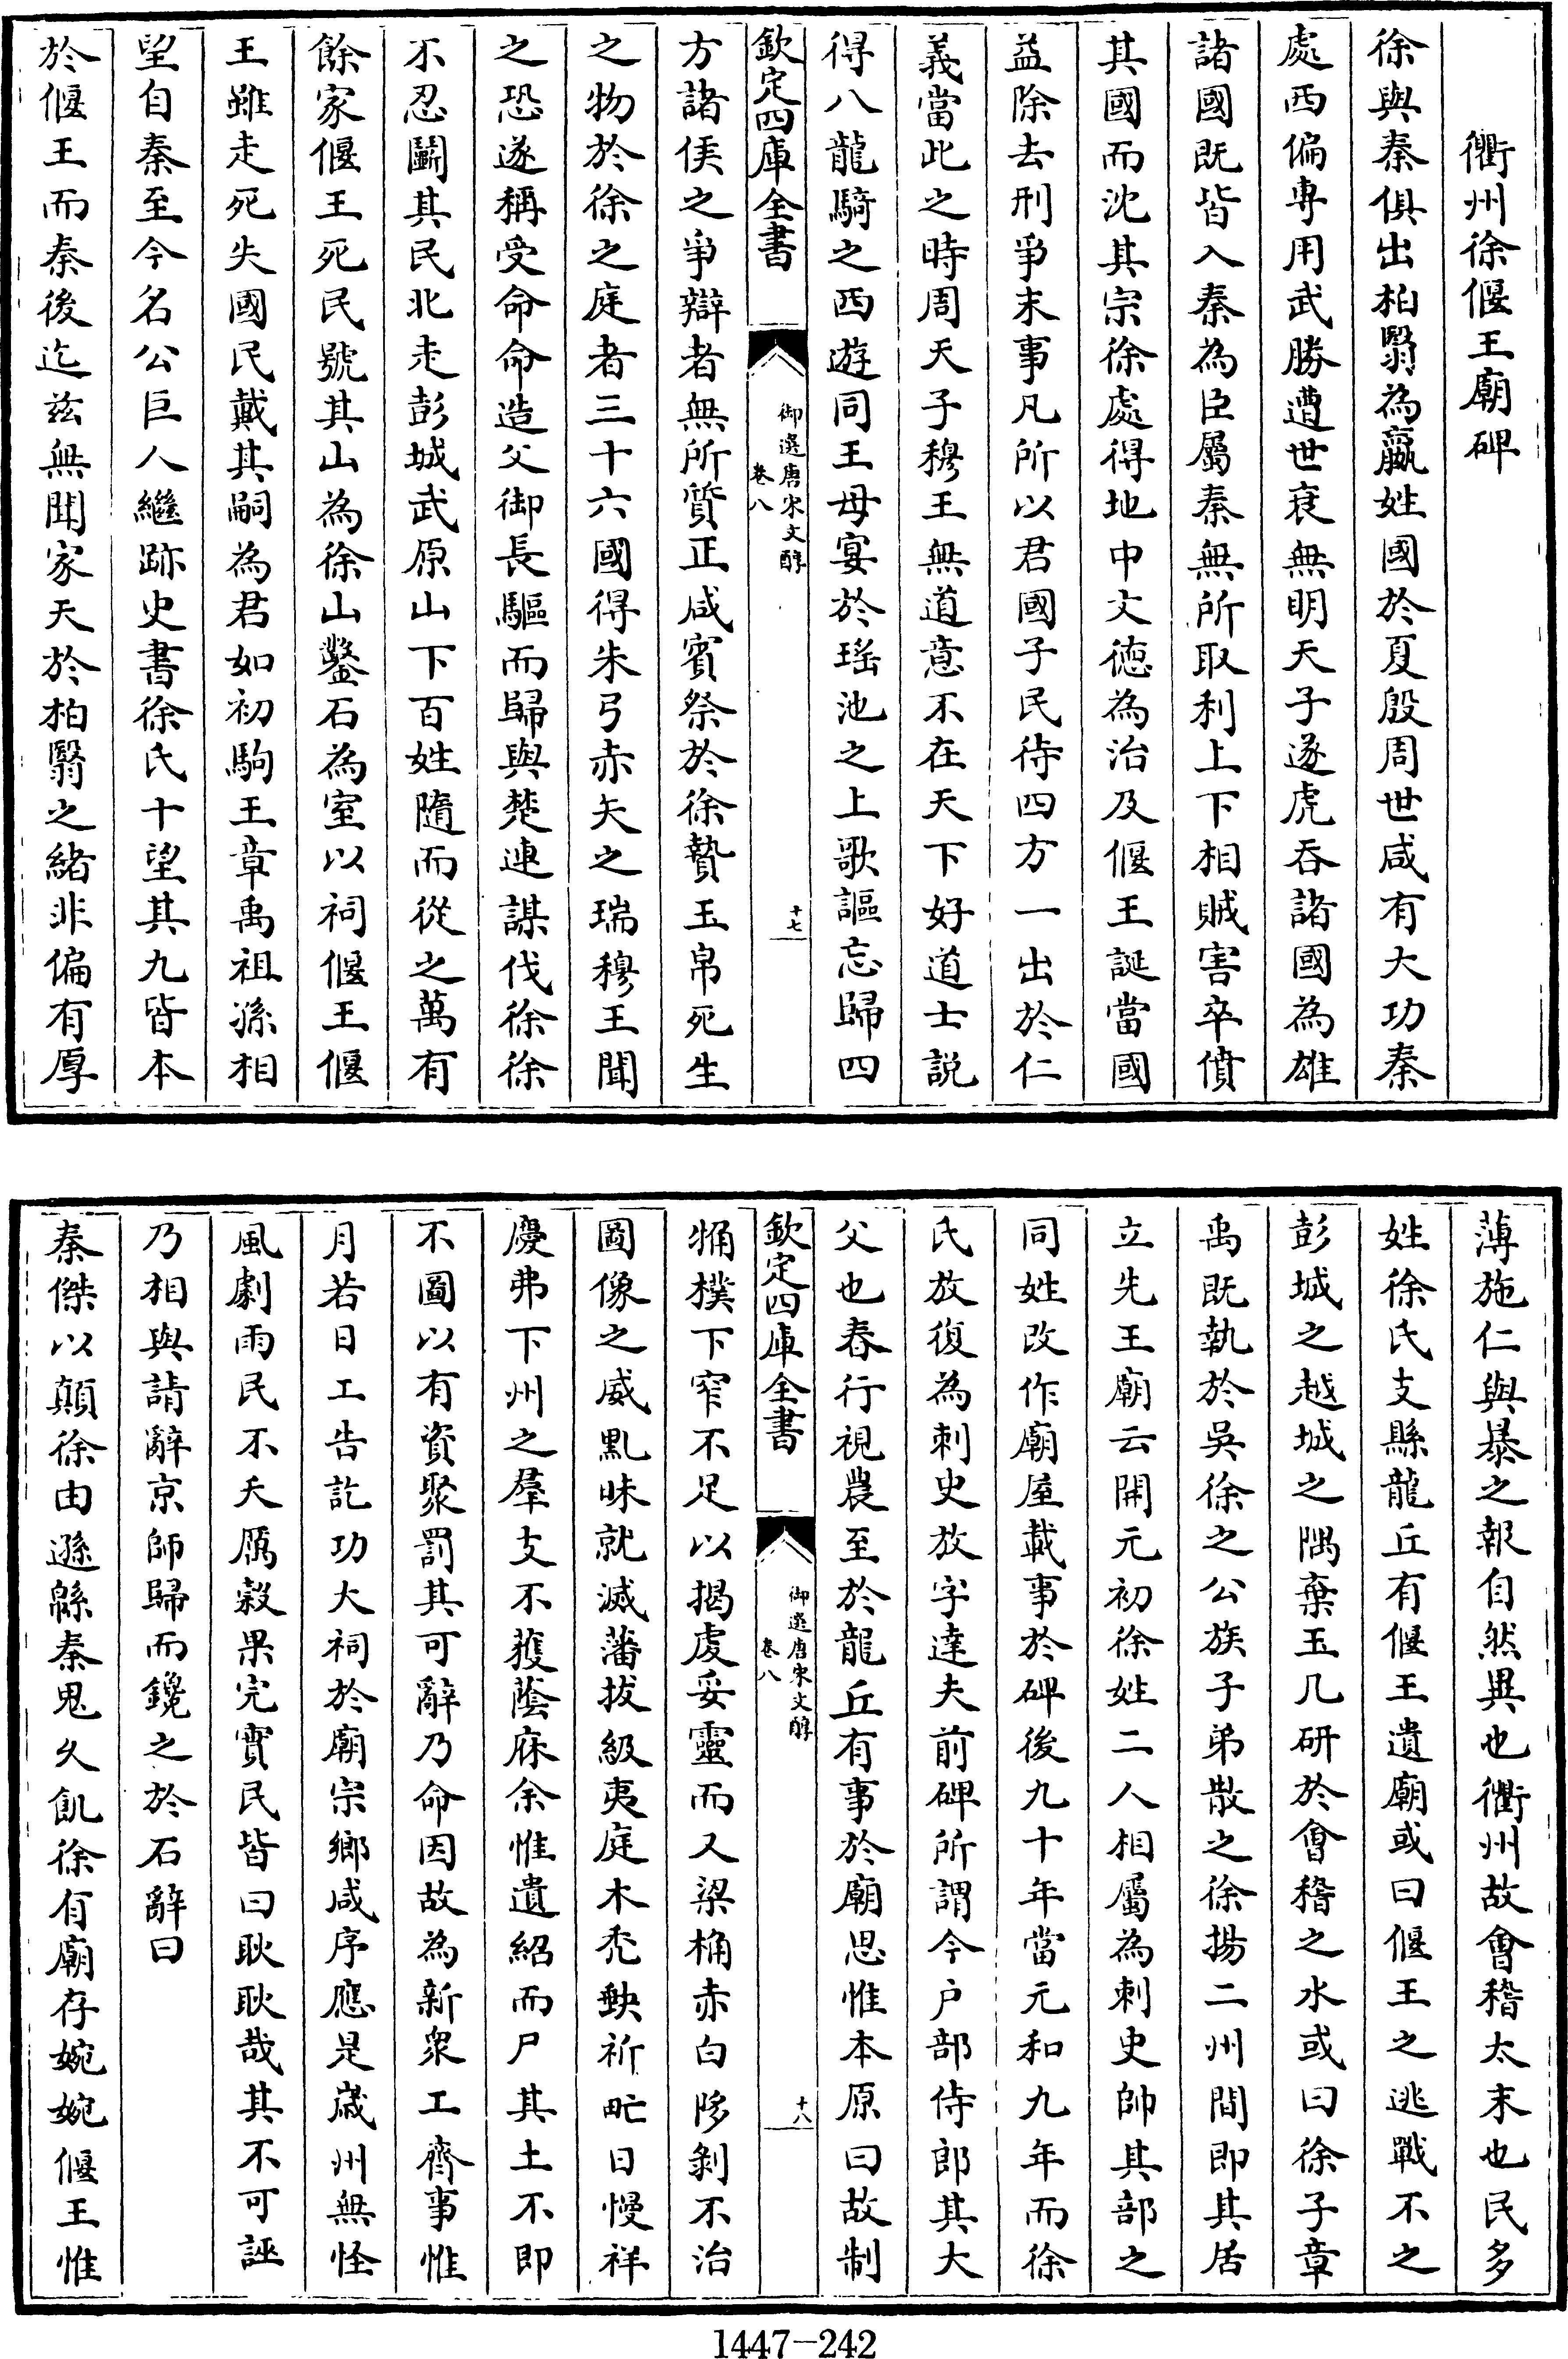 衢州徐偃王廟碑
徐與秦俱出柏翳為嬴姓國於夏殷周世咸有大功秦
處西偏専用武勝遭世衰無明天子遂虎吞諸國為雄
諸國既皆入秦為臣屬秦無所取利上下相賊害卒僨
其國而沈其宗徐處得地中文徳為治及偃王誕當國
益除去刑爭末事凡所以君國子民待四方一出於仁
義當此之時周天子穆王無道意不在天下好道士説
得八龍騎之西遊同王母宴於瑶池之上歌謳忘歸四
欽定四庫全書
御選唐宋文醇
卷八
十七
方諸侯之爭辯者無所質正咸賓祭於徐贄玉帛死生
之物於徐之庭者三十六國得朱弓赤矢之瑞穆王聞
之恐遂稱受命命造父御長驅而歸與楚連謀伐徐徐
不忍鬭其民北走彭城武原山下百姓隨而從之萬有
餘家偃王死民號其山為徐山鑿石為室以祠偃王偃
王雖走死失國民戴其嗣為君如初駒王章禹祖孫相
望自秦至今名公巨人繼跡史書徐氏十望其九皆本
於偃王而秦後迄兹無聞家天於柏翳之緒非偏有厚
薄施仁與暴之報自然異也衢州故㑹稽太末也民多
姓徐氏支縣龍丘有偃王遺廟或曰偃王之逃戰不之
彭城之越城之隅棄玉几研於㑹稽之水或曰徐子章
禹既執於吳徐之公族子弟散之徐揚二州間即其居
立先王廟云開元初徐姓二人相屬為刺史帥其部之
同姓改作廟屋載事於碑後九十年當元和九年而徐
氏放復為刺史放字達夫前碑所謂今户部侍郎其大
父也春行視農至於龍丘有事於廟思惟本原曰故制
欽定四庫全書
御選唐宋文醇
卷八
十八
觕樸下窄不足以揭虔妥靈而又梁桷赤白陊剝不治
圖像之威黓昧就滅藩拔級夷庭木禿缺祈甿日慢祥
慶弗下州之羣支不獲蔭庥余惟遺紹而尸其土不即
不圖以有資聚罰其可辭乃命因故為新衆工齊事惟
月若日工告訖功大祠於廟宗鄉咸序應是嵗州無怪
風劇雨民不夭厲穀果完實民皆曰耿耿哉其不可誣
乃相與請辭京師歸而鑱之於石辭曰
秦傑以顛徐由遜緜秦鬼久飢徐有廟存婉婉偃王惟
1447-242